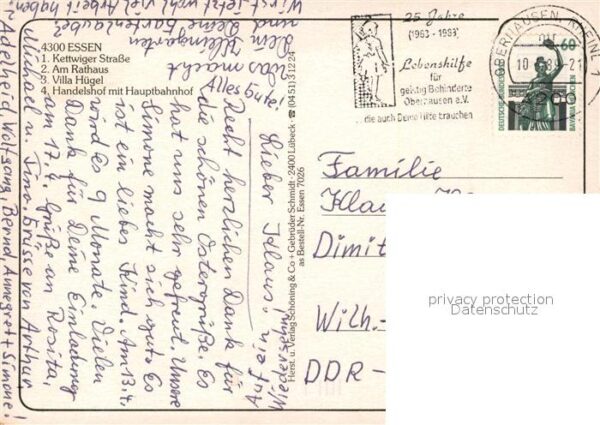 4300 ESSEN
1. Kettwiger Straße
2. Am Rathaus
3. Villa Hügel
4. Handelshof mit Hauptbahnhof
Lieber Klaus!
Recht herzlichen Dank für
die schönen Ostergrüße. Es
hat uns sehr gefreut. Unsre
Simone macht sich gut. Es
ist ein liebes Kind. Am 13.4.
wird es 9 Monate. Vielen
Dank für Deine Einladung
am 17.4. Grüße an Rosita,
Michael u. Tino Grüsse von Arthur
Adelheid, Wolfgang, Bernd, Annegret + Simone!
Alles gute!
Was macht
Dein Kleingarten
und Deine Gartenlaube,
Wirst jetzt wohl viel Arbeit haben!
Auf ein
Wiederseh'n!
Herst. u. Verlag Schöning & Co + Gebrüder Schmidt · 2400 Lübeck · ☎ (04 51) 3 12 24
as Bestell-Nr. Essen 7026
25 Jahre
(1963 - 1988)
Lebenshilfe
für
geistig Behinderte
Oberhausen e.V.
... die auch Deine Hilfe brauchen
OBERHAUSEN, RHEINL 1
4200
60
DEUTSCHE BUNDESPOST
BAVARIA MÜNCHEN
Familie
Klau
Dimit
Wilh.-
DDR -
privacy protection
Datenschutz